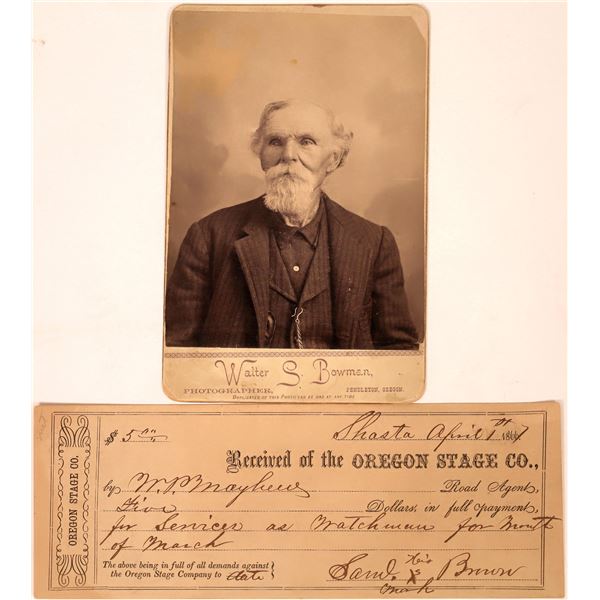 Walter S. Bowman,
PHOTOGRAPHER, PENDLETON, OREGON.
DUPLICATES OF THIS PHOTO CAN BE HAD AT ANY TIME
OREGON STAGE CO.
$ 5 00/100 Shasta April 1st
Received of the OREGON STAGE CO.,
by W. P. Mayhew Road Agent,
Five Dollars, in full payment,
for Services as Watchman for Month
of March
The above being in full of all demands against
the Oregon Stage Company to date
his
Saml. X Brown
mark